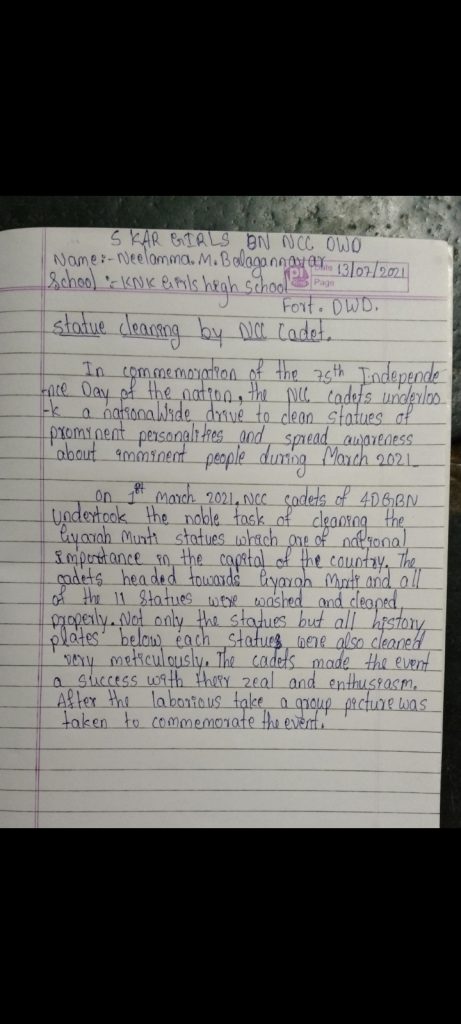 5 KAR GIRLS BN NCC DWD
Name:- Neelamma. M. Balagannavar
Date 13/07/2021
School :- KNK Girls high School
Page
Fort. DWD.
statue cleaning by NCC Cadet.
In commemoration of the 75th Independe
-nce Day of the nation, the NCC cadets underloo
-k a nationalwide drive to clean statues of
prominent personalities and spread awareness
about imminent people during March 2021
on 1st march 2021, NCC cadets of 4DGBN
Undertook the noble task of cleaning the
Gyarah Murti statues which are of national
importance in the capital of the country. The
cadets headed towards Gyarah Murti and all
of the 11 statues were washed and cleaned
properly. Not only the statues but all history
plates below each statues were also cleaned
very meticulously. The cadets made the event
a success with their zeal and enthusiasm.
After the laborious take a group picture was
taken to commemorate the event.